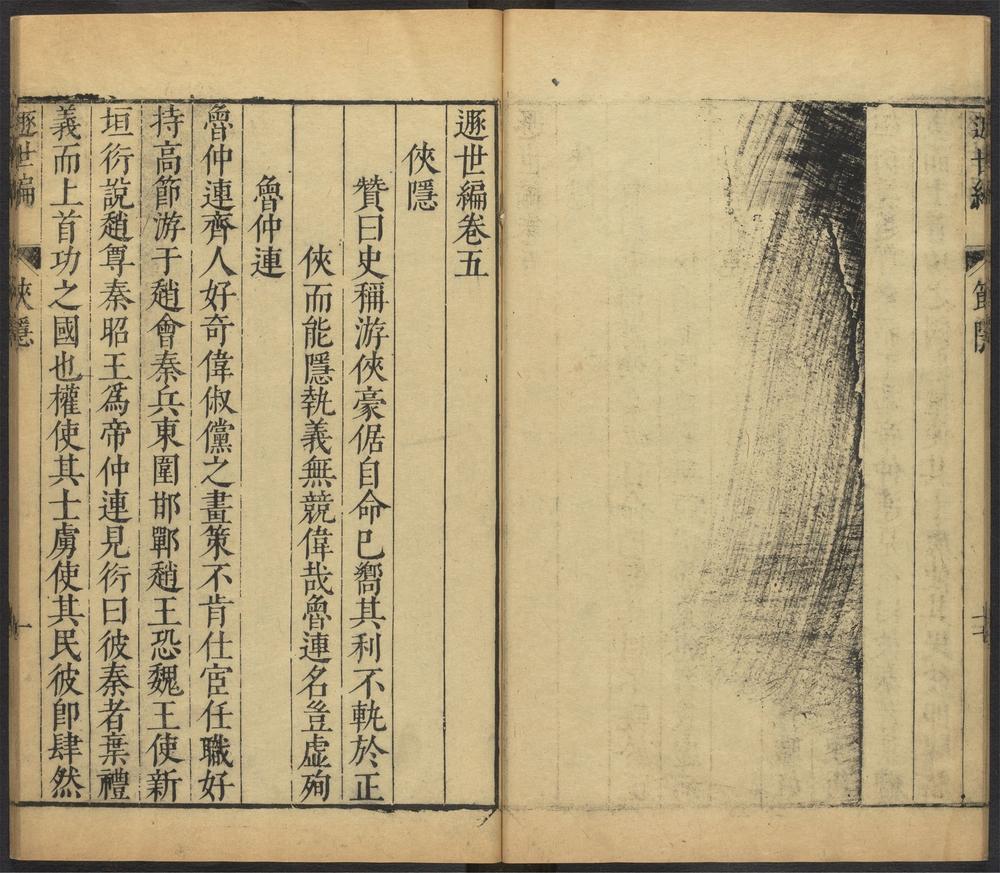 遯世編卷五
俠隱
贊曰史稱游俠豪倨自命已嚮其利不軌於正
俠而能隱執義無競偉哉魯連名豈虛殉
魯仲連
魯仲連齊人好奇偉俶儻之畫策不肯仕宦任職好
持高節游于趙會秦兵東圍邯鄲趙王恐魏王使新
垣衍說趙尊秦昭王爲帝仲連見衍曰彼秦者棄禮
義而上首功之國也權使其士虜使其民彼卽肆然
遯世編 俠隱 一